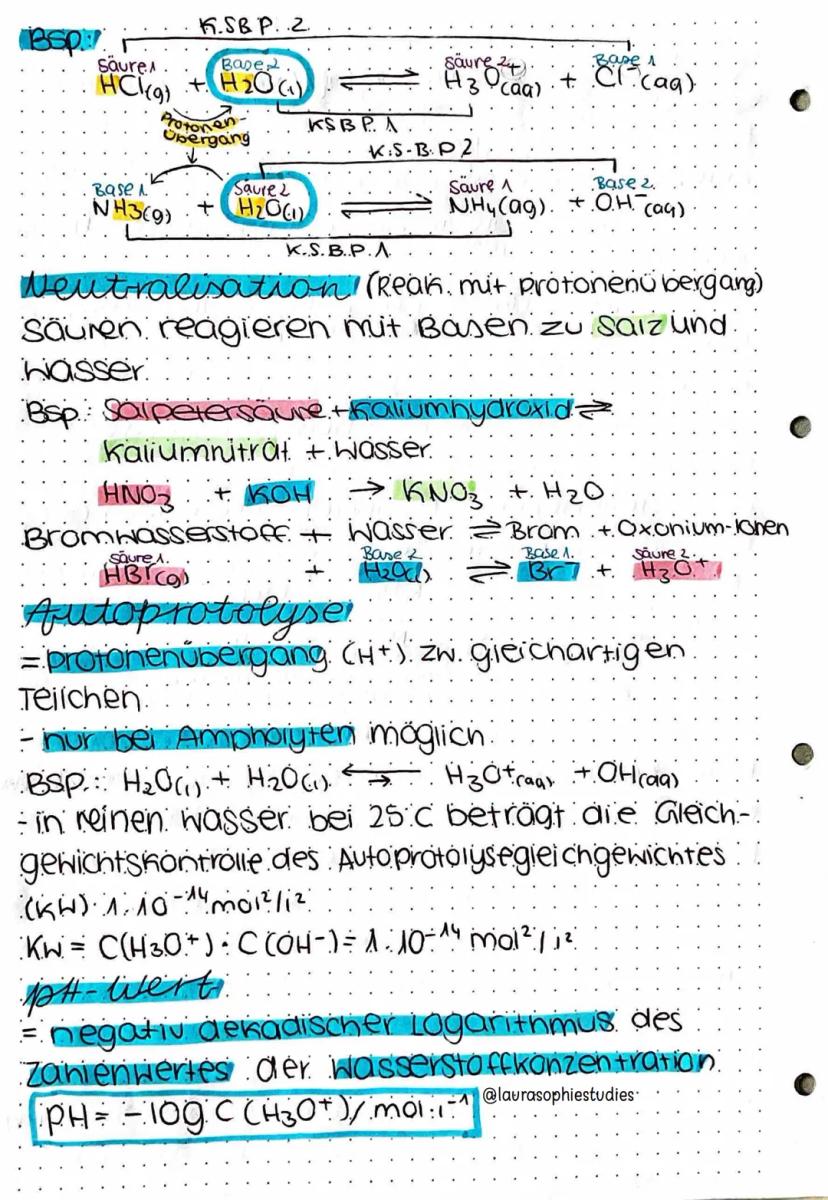 K.S.B.P. 2
Bsp:
Säure 1 Base 2 Säure 2 Base 1
HCl(g) + H2O(l) ⇌ H3O+(aq) + Cl-(aq)
Protonen
übergang
KSBP. 1
K.S.B.P 2
Base 1 Säure 2 Säure 1 Base 2
NH3(g) + H2O(l) ⇌ NH4(aq) + OH-(aq)
K.S.B.P. 1
Neutralisation (Reak. mit Protonenübergang)
Säuren reagieren mit Basen zu Salz und
Wasser
Bsp.: Salpetersäure + Kaliumhydroxid ⇌
Kaliumniträt + Wasser
HNO3 + KOH → KNO3 + H2O
Bromwasserstoff + Wasser ⇌ Brom + Oxonium-Ionen
Säure 1 Base 2 Base 1 Säure 2
HBr(g) + H2O(l) ⇌ Br- + H3O+
Autoprotolyse
= Protonenübergang (H+) zw. gleichartigen
Teilchen
- nur bei Ampholyten möglich
BSP.: H2O(l) + H2O(l) ⇌ H3O+(aq) + OH(aq)
- in reinen Wasser bei 25°C beträgt die Gleich-
gewichtskontrolle des Autoprotolysegleichgewichtes
(KW) 1·10-14 mol2/l2
KW = C(H3O+) · C(OH-) = 1·10-14 mol2/l2
pH-Wert
= negativ dekadischer Logarithmus des
Zahlenwertes der Wasserstoffkonzentration
pH = -log C (H3O+)/mol·l-1
@laurasophiestudies